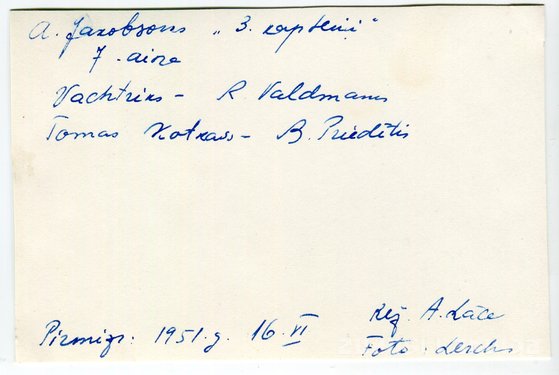 A. Jakobsons „3. kapteiņi"
7. aina
Vachtriks - R. Valdmans
Tomas Kotkass - B. Priedītis
Pirmizr. 1951. g. 16. VI
Rež. A. Lāce
Foto: